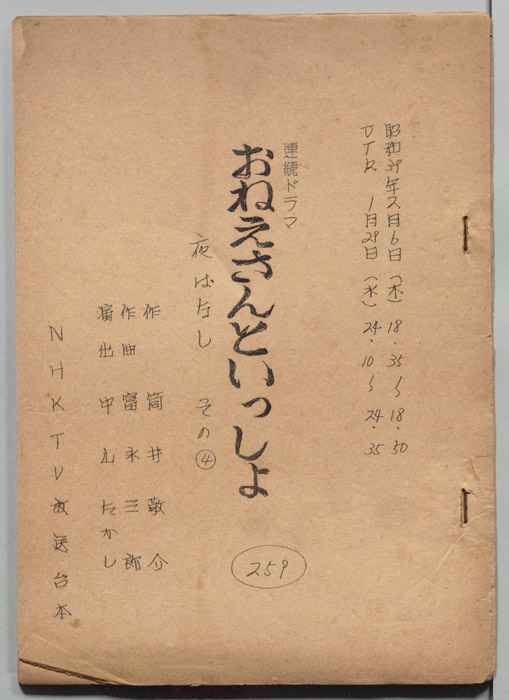 昭和39年2月6日（木）18.35〜18.50
VTR. 1月29日（水）24.10〜24.35
連続ドラマ
おねえさんといっしょ
夜ばなし その④
作 筒井敬介
作曲 富永三郎
演出 中山たかし
NHKTV放送台本
259